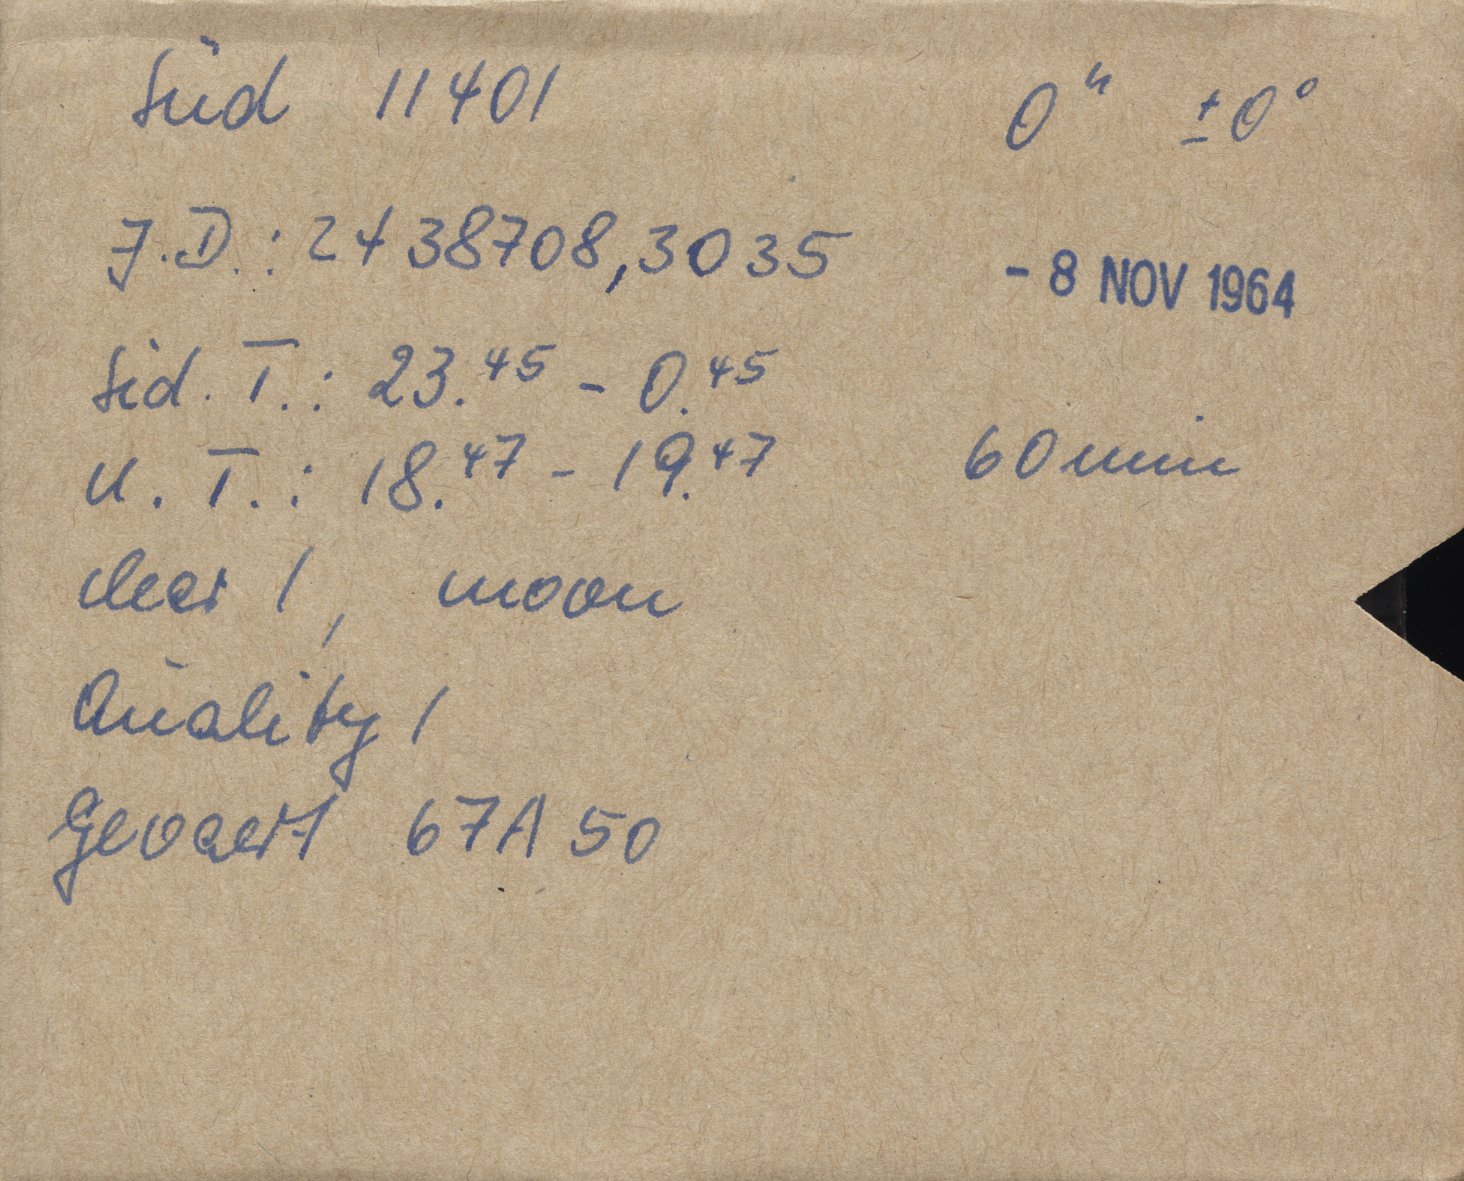 Süd 11401 0ʰ ±0°
J.D.: 2438708,3035 - 8 NOV 1964
Sid. T.: 23.⁴⁵ - 0.⁴⁵
U. T.: 18.⁴⁷ - 19.⁴⁷ 60 min
clear 1, moon
Quality 1
Gevaert 67A50